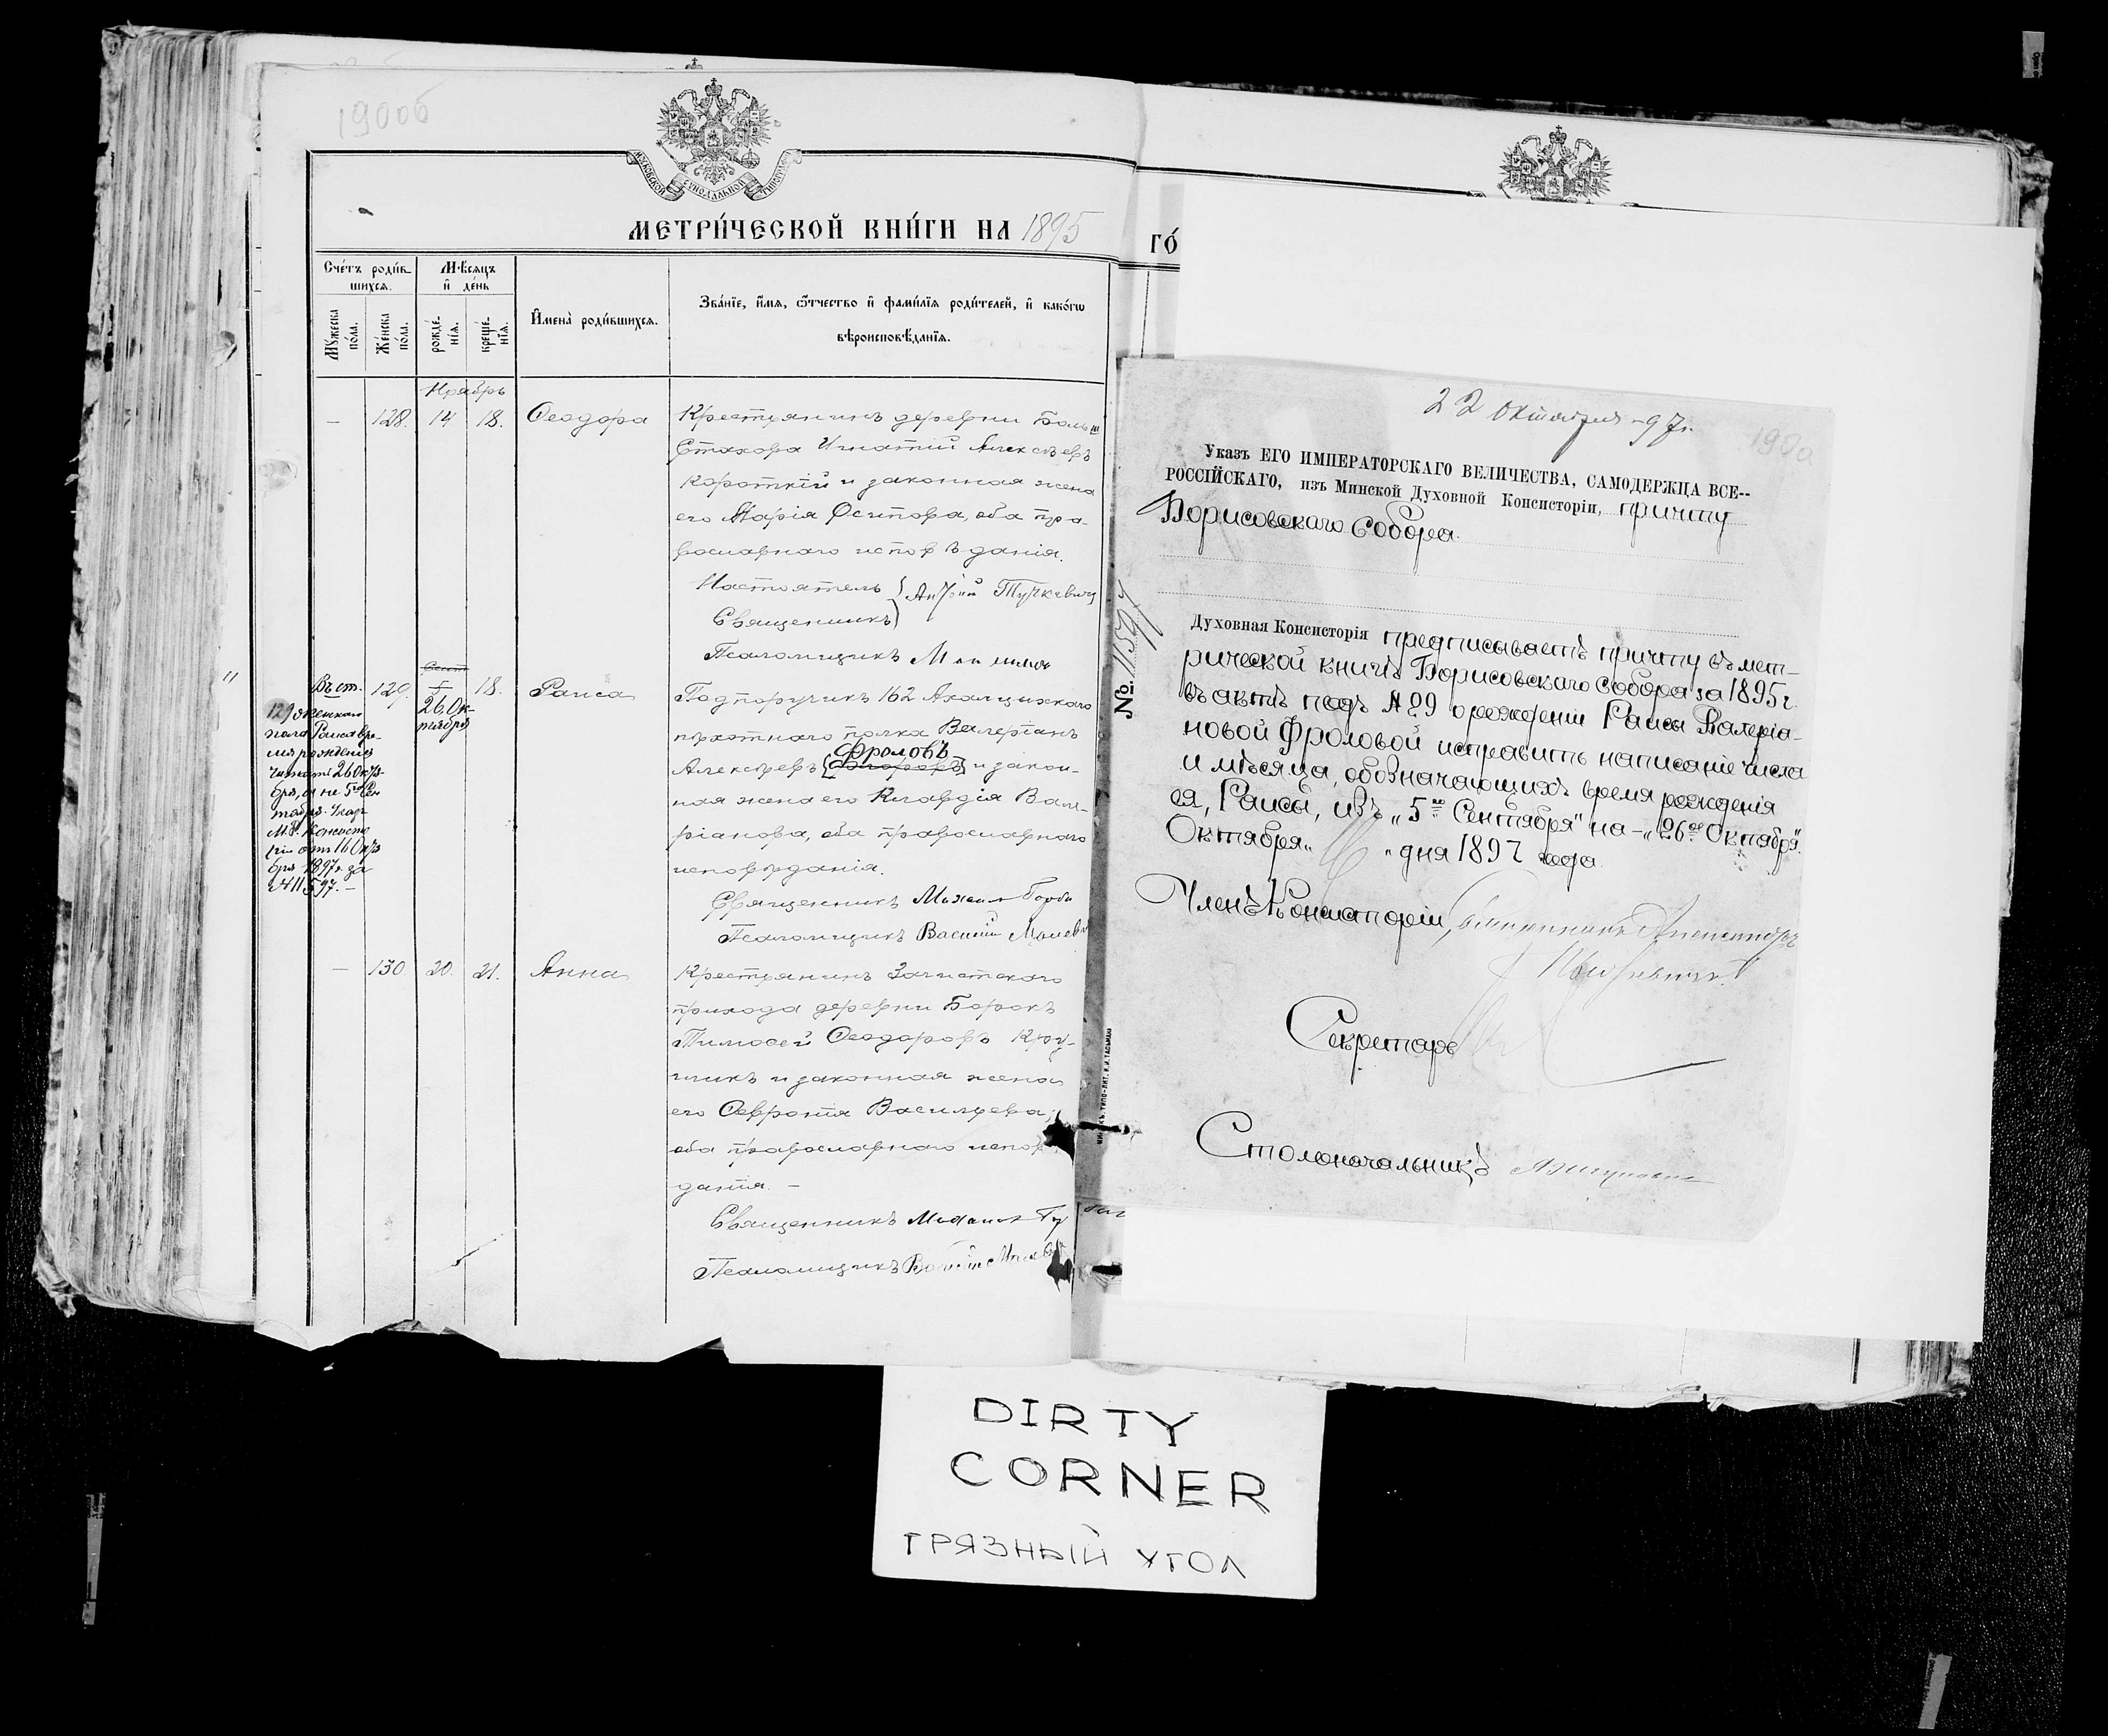 1900б
МОСКОВСКОЙ СѴНОДАЛЬНОЙ ТИПОГРАФІИ
МЕТРИ́ЧЕСКОЙ КНИ́ГИ НА 1895
ГО́
Сче́тъ роди́в-
шихся.
Мѣ́сяцъ
и҆ де́нь
Мꙋ́жеска
по́ла.
Же́нска
по́ла.
рожде́-
нїѧ.
креще́-
нїѧ.
И҆мена̀ роди́вшихсѧ.
Зва́нїе, и҆́мѧ, ѻ҆́тчество и҆ фами́лїѧ роди́телей, и҆ како́гѡ
вѣроисповѣ́данїѧ.
Ноябрь
— 128. 14 18. Ѳеодора
Крестьянинъ деревни Больш
Стахова Игнатій Алексѣевъ
Короткій и законная жена
его Марія Осипова, оба пра-
вославнаго исповѣданія.
Настоятель
Священникъ
Псаломщикъ
129. 5 18. Раиса
26 Ок-
тября
Въ ст.
129 женскаго
пола Раиса вре-
мя рожденія
читать 26 Октя-
бря, а не 5го Сен
тября. Указ
М. Д. Консисто
ріи отъ 16 Октя
бря 1897 г. за
№ 11597. —
Подпоручикъ 162 Ахалцихскаго
пѣхотнаго полка Валеріанъ
Фроловъ
Алексѣевъ и закон-
ная жена его Клавдія Вале-
ріанова, оба православнаго
исповѣданія.
Священникъ Михаил
Псаломщикъ Василій
— 130. 20. 21. Анна
Крестьянинъ Зачистскаго
прихода деревни Борокъ
Тимоѳей Ѳеодоровъ Кру-
и законная жена
его Васильева,
оба православнаго исповѣ
данія. —
Священникъ Михаил
Псаломщикъ Василій
22 Октября -97 г.
1900
Указъ ЕГО ИМПЕРАТОРСКАГО ВЕЛИЧЕСТВА, САМОДЕРЖЦА ВСЕ--
РОССІЙСКАГО, изъ Минской Духовной Консисторіи, причту
Борисовскаго Собора.
№ 11597
Духовная Консисторія предписываетъ причту въ мет-
рической книгѣ Борисовскаго Собора за 1895 г.
въ актѣ подъ № 129 о рожденіи Раисы Валеріа-
новой Фроловой исправить написаніе числа
и мѣсяца, обозначающихъ время рожденія
ея, Раисы, изъ „5го Сентября" на — „26ое Октября".
Октября „16" дня 1897 года.
Членъ Консисторіи, Священникъ Александръ
Секретарь
Столоначальникъ
DIRTY
CORNER
ГРЯЗНЫЙ УГОЛ